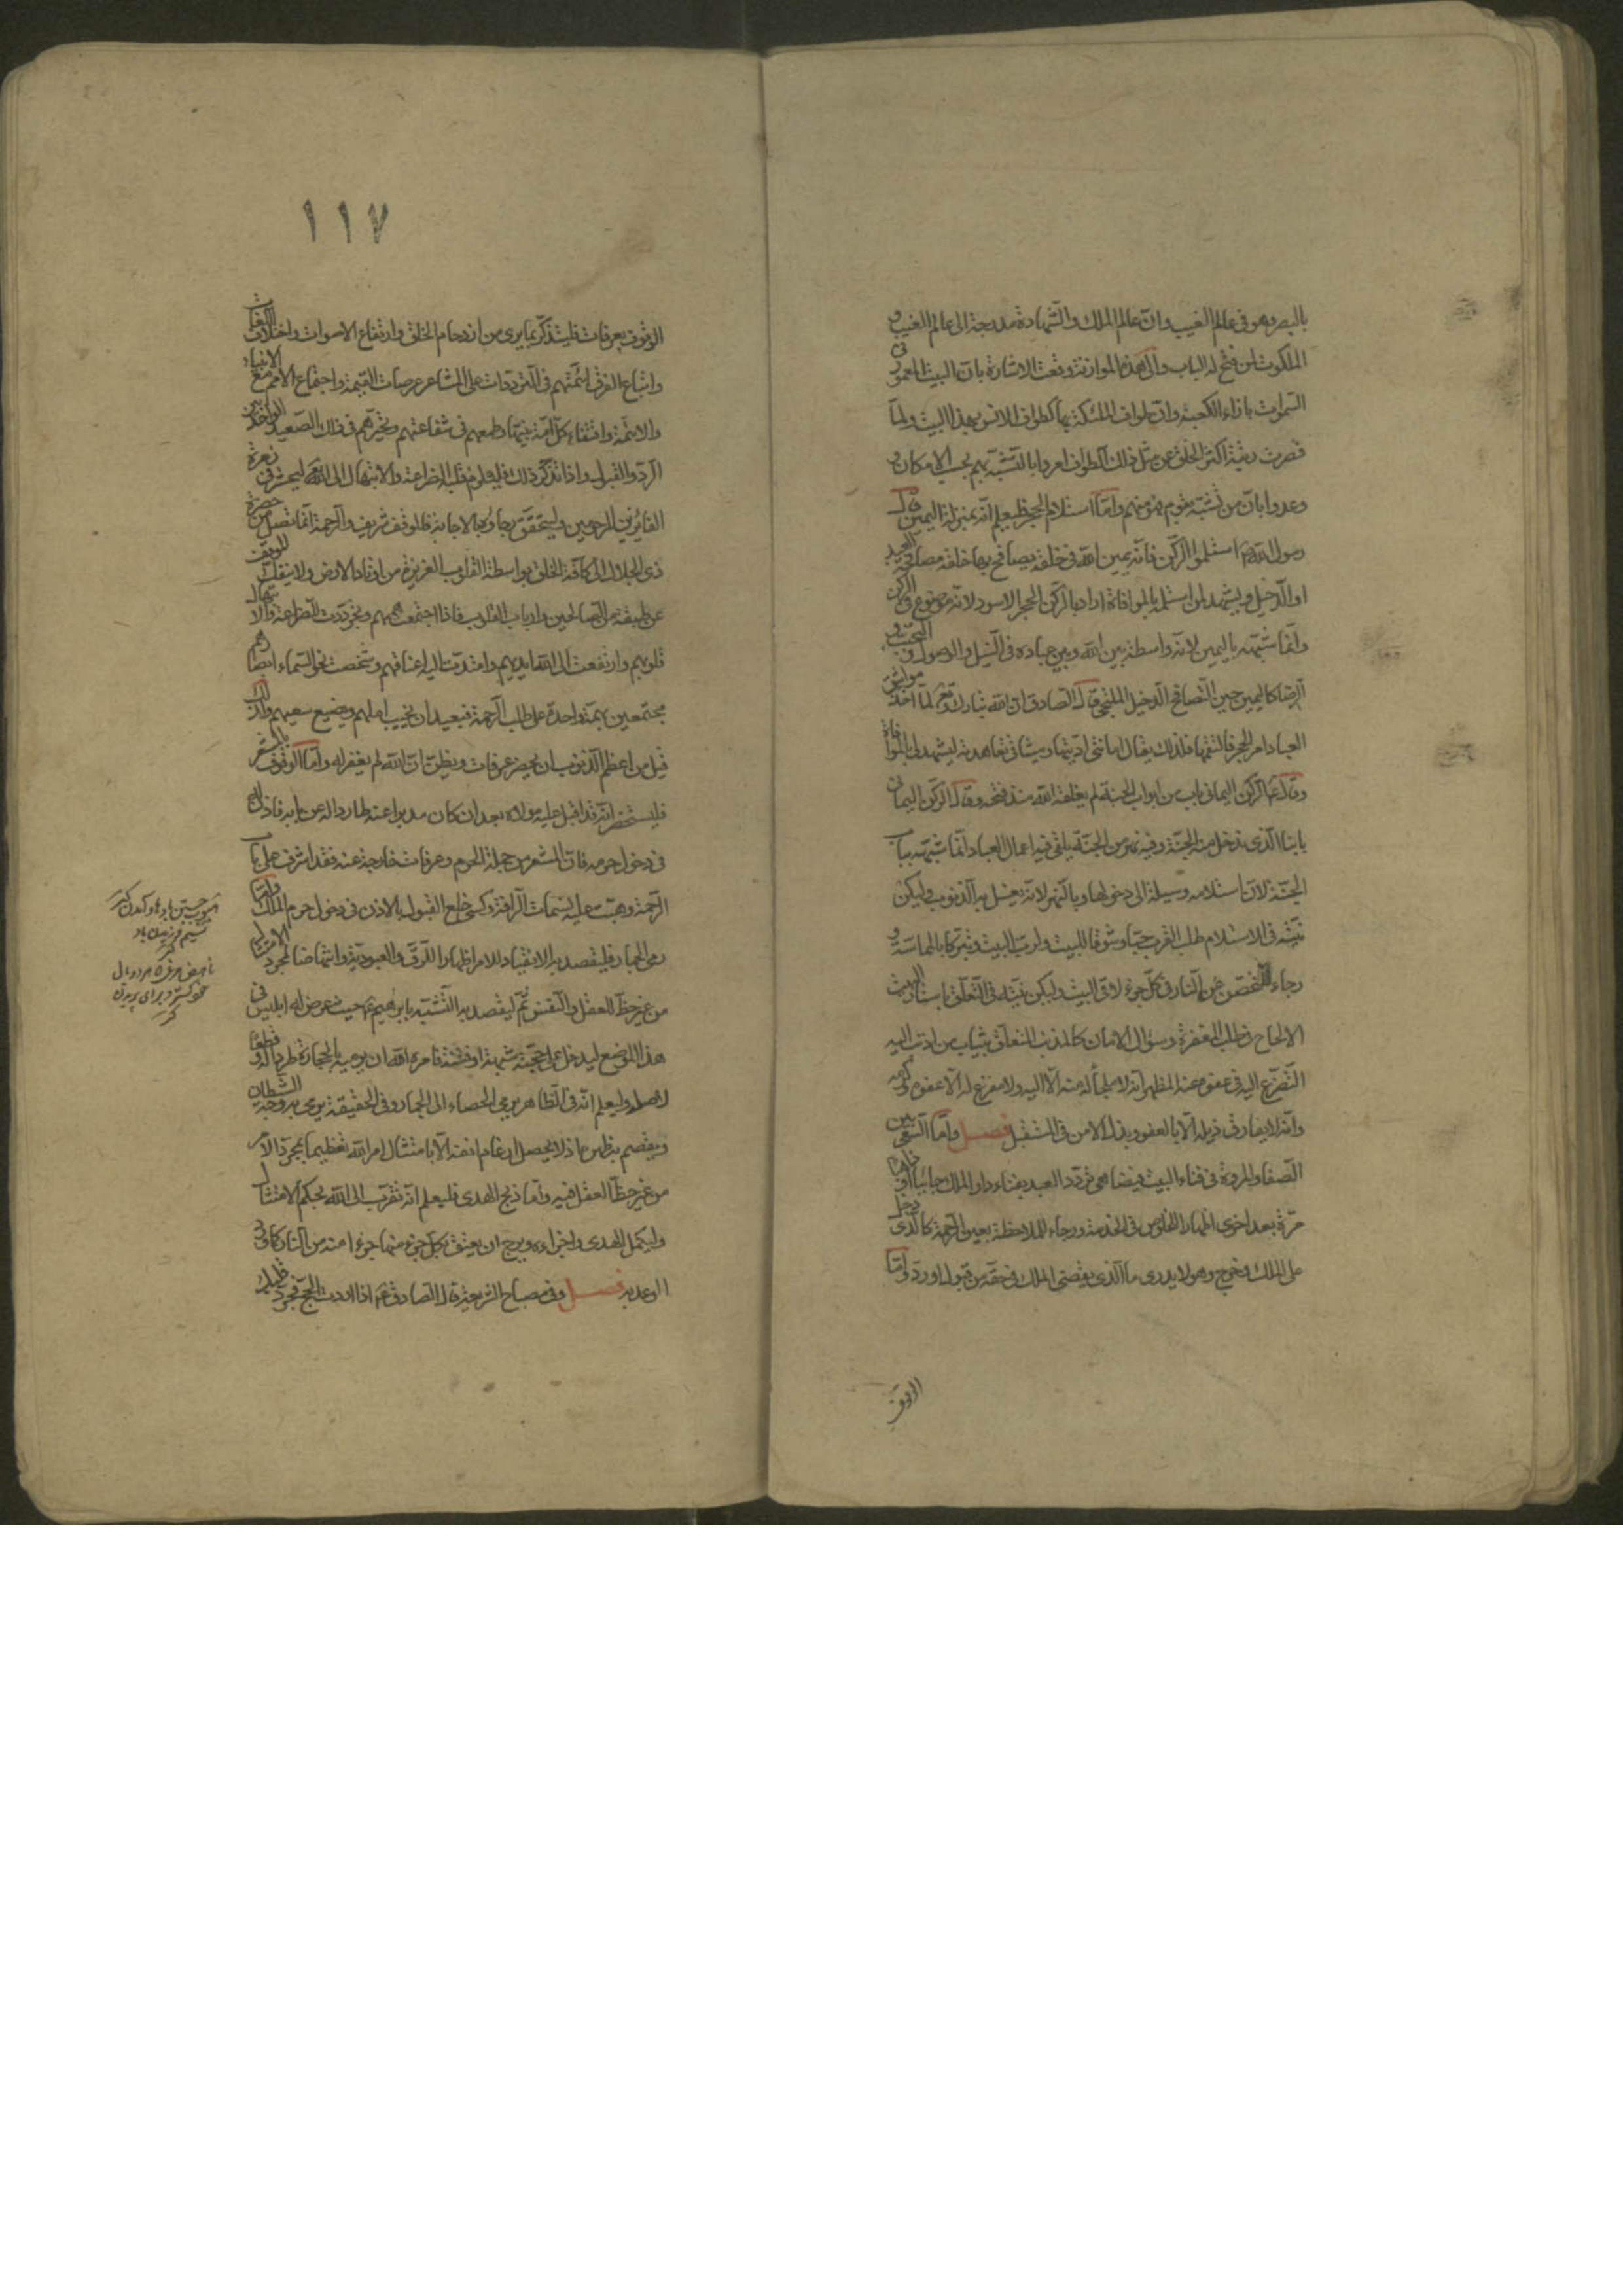 بالبصر وهو فى عالم الغيب وانّ عالم الملك والشّهادة مدرجة الى عالم الغيب و
الملكوت لمن فتح له الباب والى هذه الموازنة وقعت الاشارة بانّ البيت المعمور فى
السّموات بازاء الكعبة وانّ طواف الملئكة بها كطواف الانس بهذا البيت ولمّا
قصرت رتبة اكثر الخلق عن مثل ذلك الطواف امروا بالتشبّه بهم بحسب الامكان و
وعدوا بانّ من تشبّه بقوم فهو منهم وامّا استلام الحجر فليعلم انّه بمنزلة اليمين قال
رسول الله ص استلموا الركن فانّه يمين الله فى خلقه يصافح بها خلقه مصافحة العبد
او الدّخيل ويشهد لمن استلمه بالموافاة اراد بالركن الحجر الاسود لانه موضوع فى الركن
وانّما شبّهه باليمين لانه واسطة بين الله وبين عباده فى النيل والوصول و التحبّب و
الرّضا كاليمين حين التّصافح الدخيل الملتجى وقال الصّادق ان الله تبارك وتعالى لمّا اخذ مواثيق
العباد امر الحجر فالتقمها فلذلك يقال امانتى ادّيتها وميثاقى تعاهدته لتشهد لى بالموافاة
وقال ع الرّكن اليمانى باب من ابواب الجنة لم يغلقه الله منذ فتحه وقال الركن اليمانى
بابنا الّذى ندخل منه الجنّة وفيه نهر من الجنّة يلقى فيه اعمال العباد انّما شبّهه بباب
الجنّة لانّ استلامه وسيلة الى دخولها وبالنّهر لانه يغسل به الذنوب وليكن
نيّته فى الاستلام طلب القرب حبّا وشوقا للبيت ولربّ البيت وتبرّكا بالمماسّة و
رجاء للتحصّن عن النار فى كلّ جزء لاقى البيت وليكن نيّته فى التعلّق باستار البيت
الالحاح فى طلب المغفرة وسؤال الامان كالمذنب المتعلّق بثياب من اذنب اليه
التّضرّع اليه فى عفوه عنه المظهر انه لا ملجأ له منه الّا اليه ولا مفزع له الّا عفوه وكرمه
وانه لا يفارق ذيله الّا بالعفو وبذل الامن فى المستقبل فصل وامّا السّعى بين
الصّفا والمروة فى فناء البيت فيضاهى تردّد العبد بفناء دار الملك جائيا وذاهبا
مرّة بعد اخرى اظهارا للخلوص فى الخدمة ورجاء للملاحظة بعين الرحمة كالّذى دخل
على الملك وخرج وهو لا يدرى ما الّذى يقضى الملك فى حقّه من قبول او ردّ وامّا
الوقوف
١١٧
الوقوف بعرفات فليتذكّر بما يرى من ازدحام الخلق وارتفاع الاصوات واختلاف اللغات
واتباع الفرق ائمّتهم فى التردّدات على المشاعر عرصات القيمة واجتماع الامم مع الانبياء
والائمّة واقتفاء كلّ امّة نبيّها وطمعهم فى شفاعتهم وتحيّرهم فى ذلك الصّعيد الواحد بين
الردّ والقبول واذا تذكّر ذلك فليلزم قلبه الضراعة والابتهال الى الله تع ليحشر فى زمرة
الفائزين المرحومين وليتحقّق رجاؤه بالاجابة فالموقف شريف والرحمة انّما تصل من حضرة
ذى الجلال الى كافّة الخلق بواسطة القلوب العزيزة من اوتاد الارض ولا ينفك الموقف
عن طبقة من الصّالحين وارباب القلوب فاذا اجتمعت هممهم وتجرّدت للضراعة والابتهال
قلوبهم وارتفعت الى الله ايديهم وامتدّت اليه اعناقهم وشخصت نحو السّماء ابصارهم
مجتمعين بهمّة واحدة على طلب الرّحمة فبعيد ان يخيب املهم ويضيع سعيهم ولذلك
قيل من اعظم الذنوب ان يحضر عرفات ويظنّ انّ الله لم يغفر له وامّا الوقوف بالمشعر
فليستحضر انّه قد اقبل عليه مولاه بعد ان كان مدبرا عنه طاردا له عن بابه فاذن له
فى دخول حرمه فانّ المشعر من جملة الحرم وعرفات خارجة عنه فقد اشرف على باب
الرّحمة وهبّت عليه نسمات الرافة وكسى خلع القبول بالاذن فى دخول حرم الملك وامّا
رمى الجمار فليقصد به الانقياد للامر اظهارا للرّقّ والعبوديّة وانتهاضا لمجرد الامتثال
من غير حظّ للعقل والنّفس ثمّ ليقصد به التشبّه بابراهيم ع حيث عرض له ابليس فى
هذا الموضع ليدخل على حجّه شبهة او فتنة فامره الله ان يرميه بالحجارة طردا له وقطعا
لامله وليعلم انّه فى الظاهر يرمى الحصاء الى الجمار وفى الحقيقة يرمى به وجه الشّيطان
ويقصم به ظهره اذ لا يحصل ارغام انفه الّا بامتثال امر الله تعظيما بمجرد الامر
من غير حظّ للعقل فيه وامّا ذبح الهدى فليعلم انّه تقرّب الى الله بحكم الامتثال
وليكمل الهدى واجزاءه ويرج ان يعتق بكلّ جزء منها جزءا منه من النار كما فى
الوعد به فصل وفى مصباح الشريعة قال الصادق ع اذا اردت الحجّ فجرّد قلبك